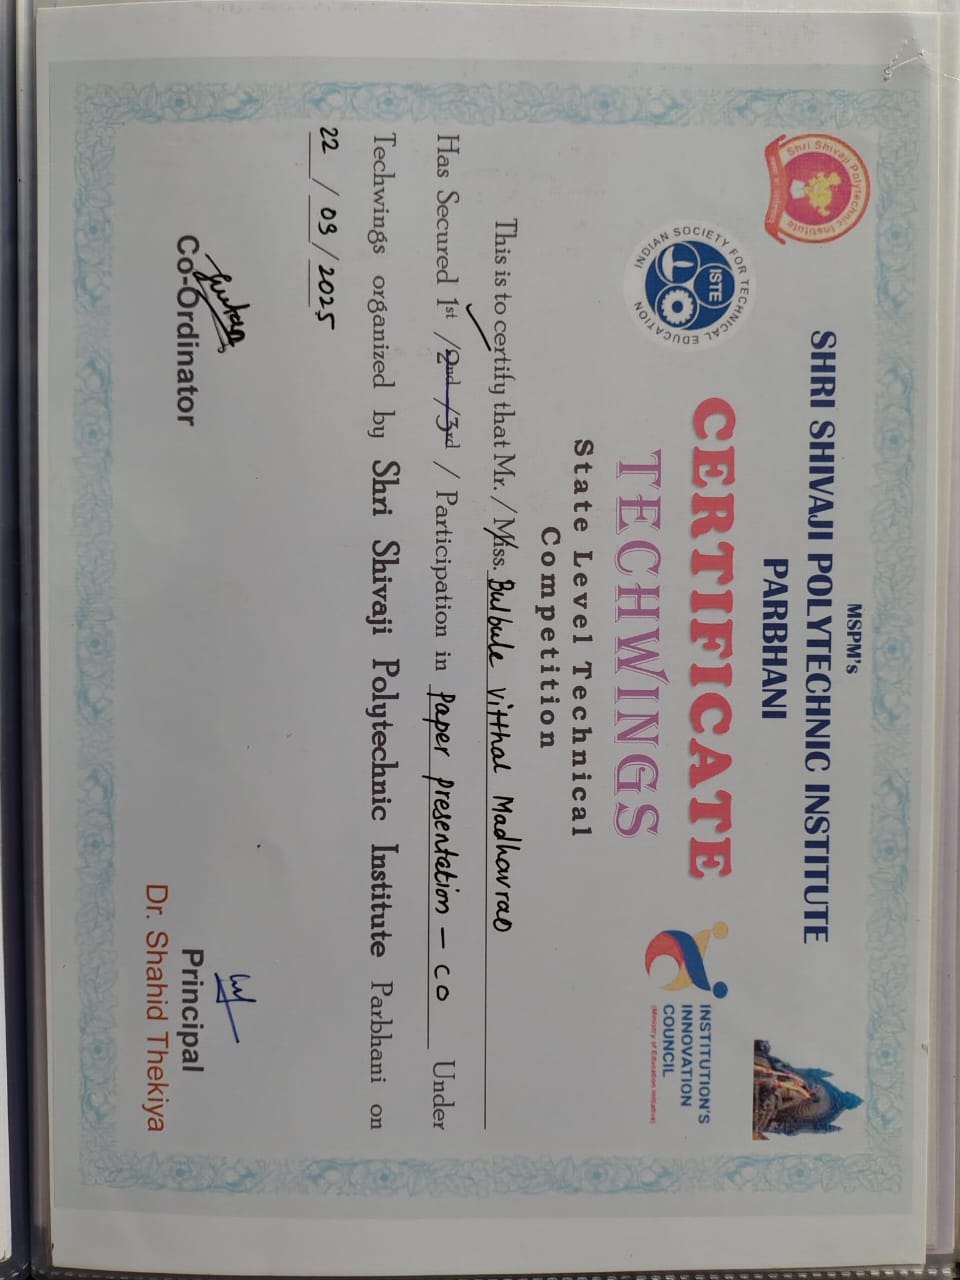 MSPM's
SHRI SHIVAJI POLYTECHNIC INSTITUTE
PARBHANI
Shri Shivaji Polytechnic Institute
INDIAN SOCIETY FOR TECHNICAL EDUCATION
ISTE
CERTIFICATE
INSTITUTION'S
INNOVATION
COUNCIL
(Ministry of Education Initiative)
TECHWINGS
State Level Technical
Competition
This is to certify that Mr. / Miss. Bulbule Vitthal Madhavrao
Has Secured 1st / 2nd / 3rd / Participation in Paper presentation – CO Under
Techwings organized by Shri Shivaji Polytechnic Institute Parbhani on
22 / 09 / 2025
Co-Ordinator
Principal
Dr. Shahid Thekiya